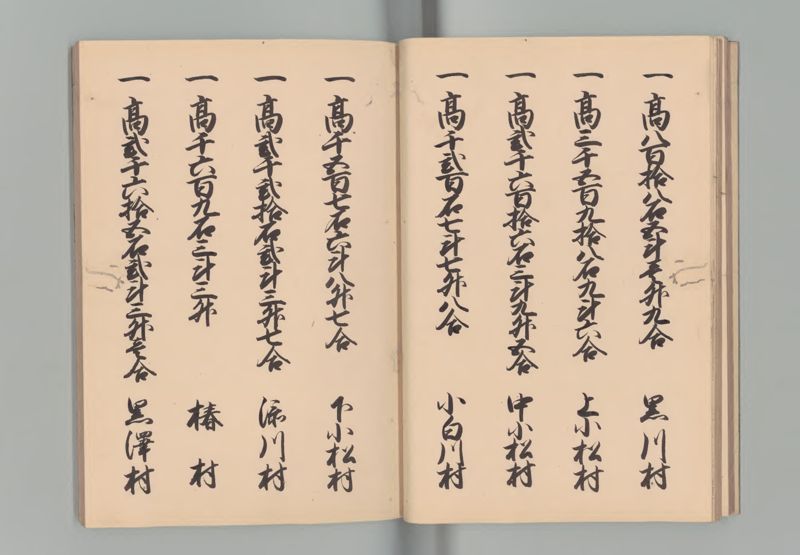 一 高八百拾八石五斗壱升九合 黒川村
一 高三千五百九拾八石九斗六合 上小松村
一 高弐千六百拾六石三斗九升五合 中小松村
一 高千弐百石七斗七升八合 小白川村
一 高千五百七石六斗八升七合 下小松村
一 高弐千弐拾石弐斗三升七合 添川村
一 高千六百九石三斗三升 椿村
一 高弐千六拾五石弐斗三升壱合 黒澤村